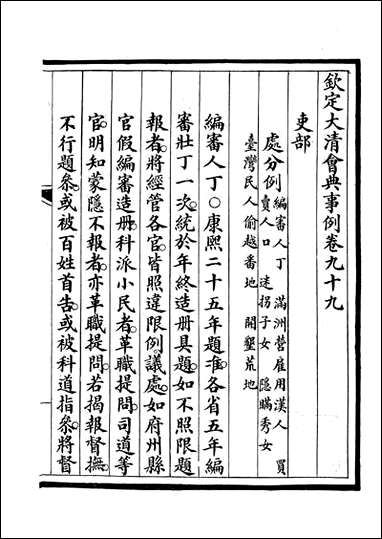 欽定大清會典事例卷九十九
吏部
處分例編審人丁 滿洲營雇用漢人 買
賣人口 迷拐子女 隱瞞秀女
臺灣民人偷越番地 開墾荒地
編審人丁○康熙二十五年題准各省五年編
審壯丁一次統於年終造册具題如不照限題
報者將經管各官皆照違限例議處如府州縣
官假編審造册科派小民者革職提問司道等
官明知蒙隱不報者亦革職提問若揭報督撫
不行題參或被百姓首告或被科道指參將督